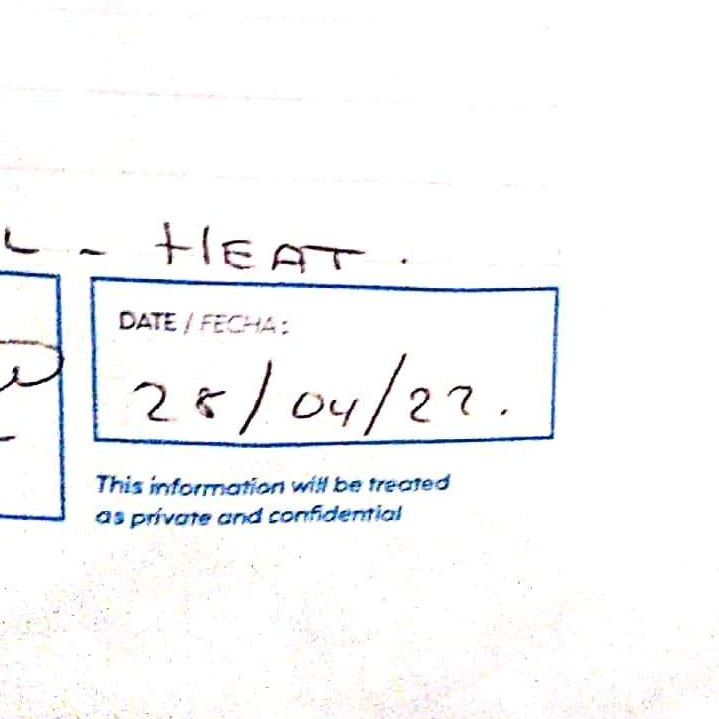 L - HEAT.
DATE / FECHA:
28/04/22.
This information will be treated
as private and confidential